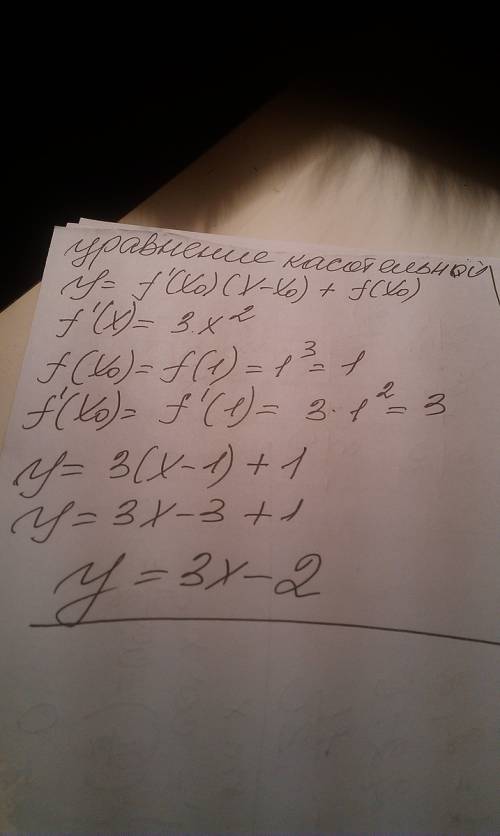 уравнение касательной
y = f'(x₀)(x-x₀) + f(x₀)
f'(x) = 3·x²
f(x₀) = f(1) = 1³ = 1
f'(x₀) = f'(1) = 3·1² = 3
y = 3(x-1)+1
y = 3x-3+1
y = 3x-2